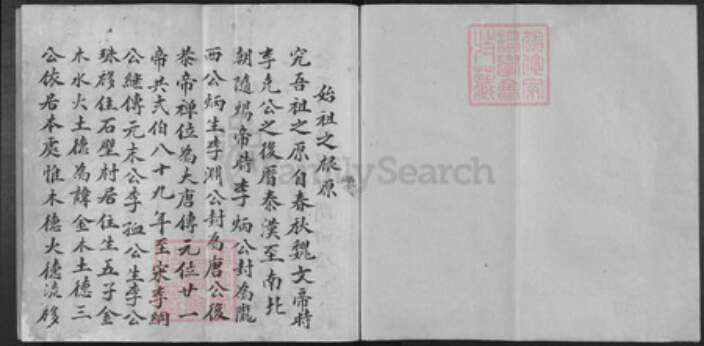 始祖之根原
究吾祖之原自春秋魏文帝時
李克公之後曆秦漢至南北
朝隨賜帝時李炳公封為隴
西公炳生李淵公封為唐公後
恭帝禅位為大唐傳元位廿一
帝共弍伯八十九年至宋李綱
公継傳元末公李孤公生李公
珠移住石壁村居住生五子金
木水火土德為諱金水土德三
公依居本處惟木德火德流移
FamilySearch